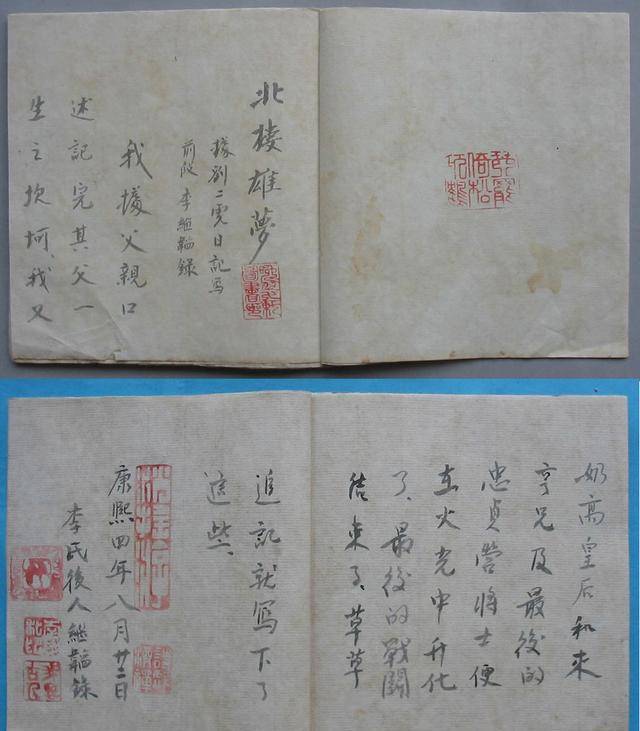 北棱雄夢
據劉二虎日記写
前段李繼錄
我據父親口
述記完其父一
生之坎坷、我又
奶高皇后和來
亨兄及最後的
忠貞營將士便
在火光中升化
了、最後的戰鬭
结束了、草草
追記就寫下了
這些、
康熙四年八月廿二日
李氏後人繼錄